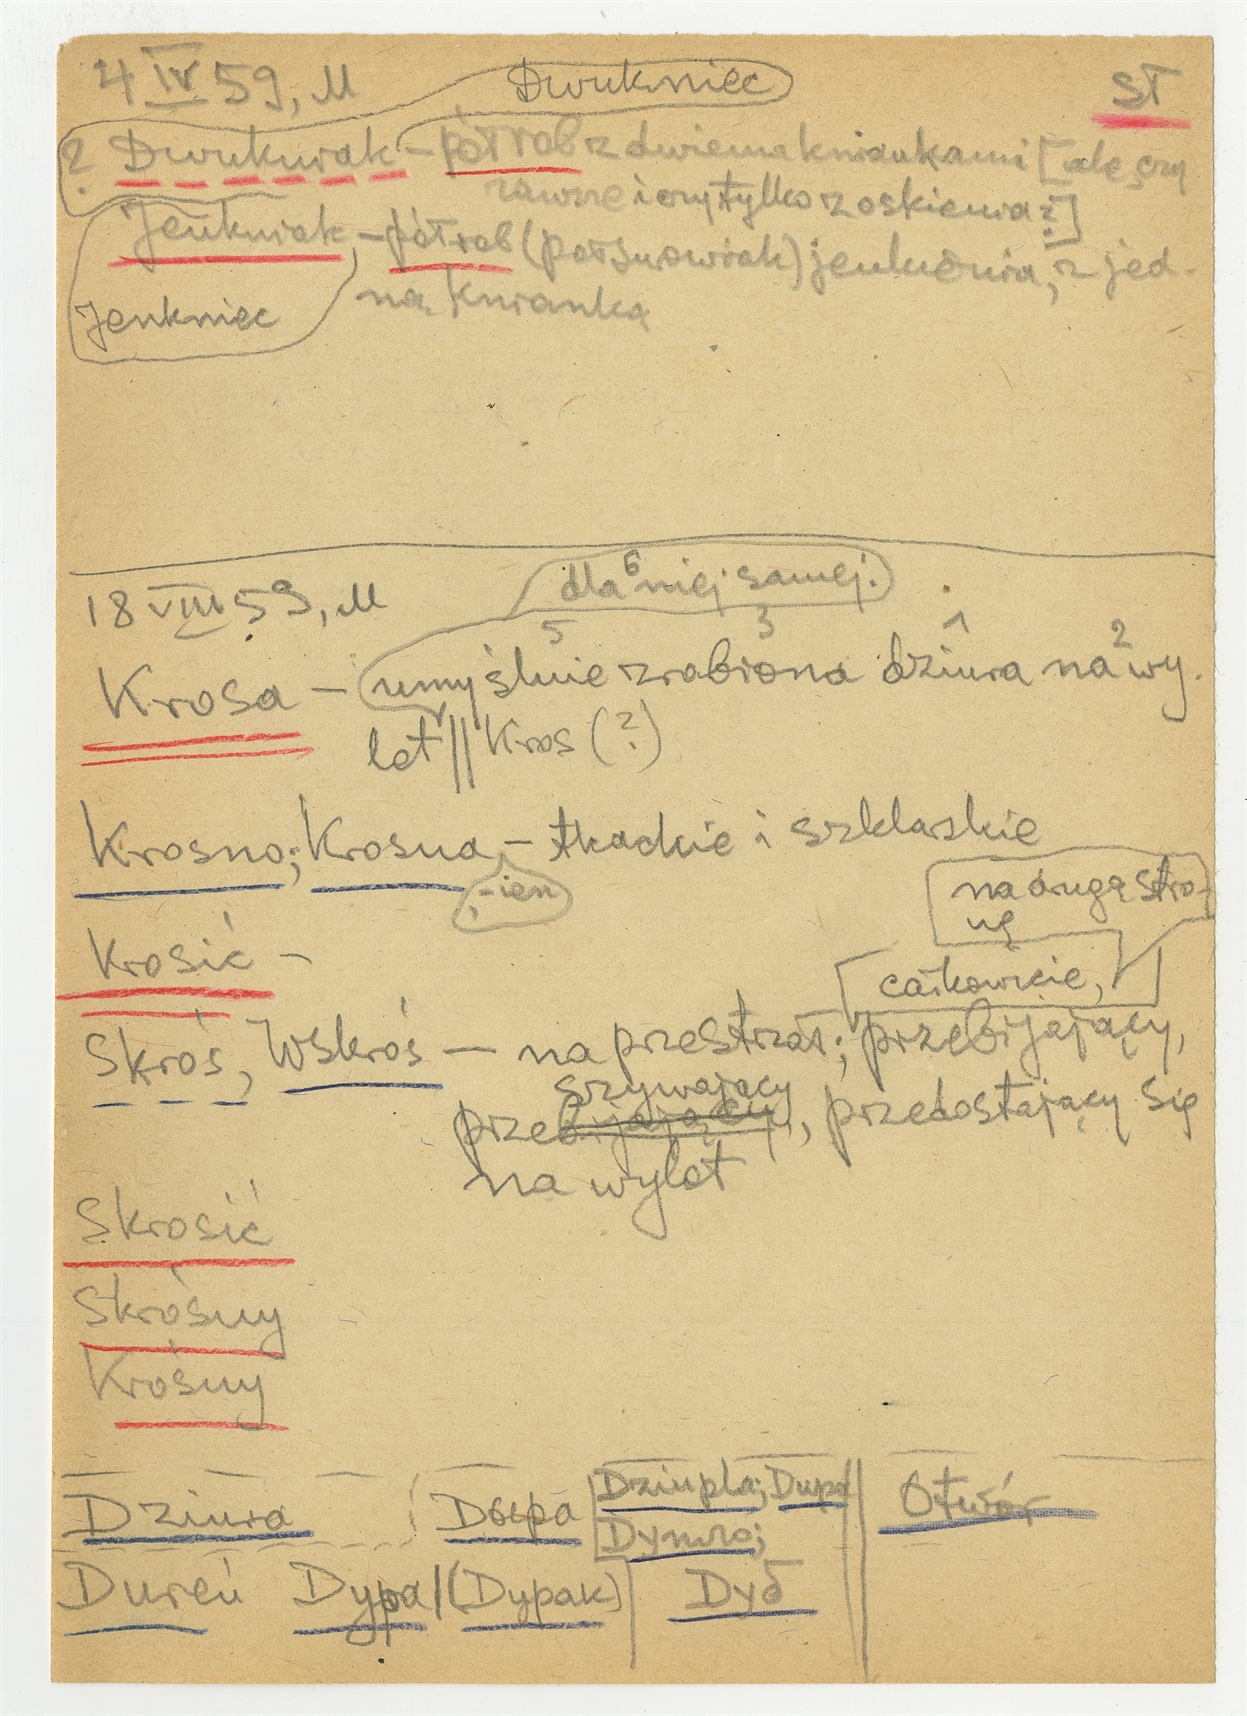 4 IV 59, M
Dwukniec
ST
? Dwukniak – półrob z dwiema kniankami [ale czy
zawsze i czy tylko z oskienia?]
Jenkniak – półrob (półsurowiak) jenknienia, z jed-
ną knianką
Jenkniec
18 VIII 59, M
dla 6 niej samej.
5 3 1 2
Krosa – umyślnie zrobiona dziura na wy-
lot || Kros (?)
Krosno; Krosna – tkackie i szklarskie
, -ien
na drugą stro-
nę
Krosić –
całkowicie,
Skroś, Wskroś — na przestrzał; przebijający,
szywający
przebijający, przedostający się
na wylot
Skrosić
Skrośny
Krośny
Dziura Dыра Dziupla; Dupa Otwór
Dymło;
Dureń Dypa/(Dypak) Dyб